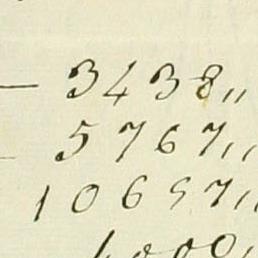 — 3438„
— 5767„
10657„